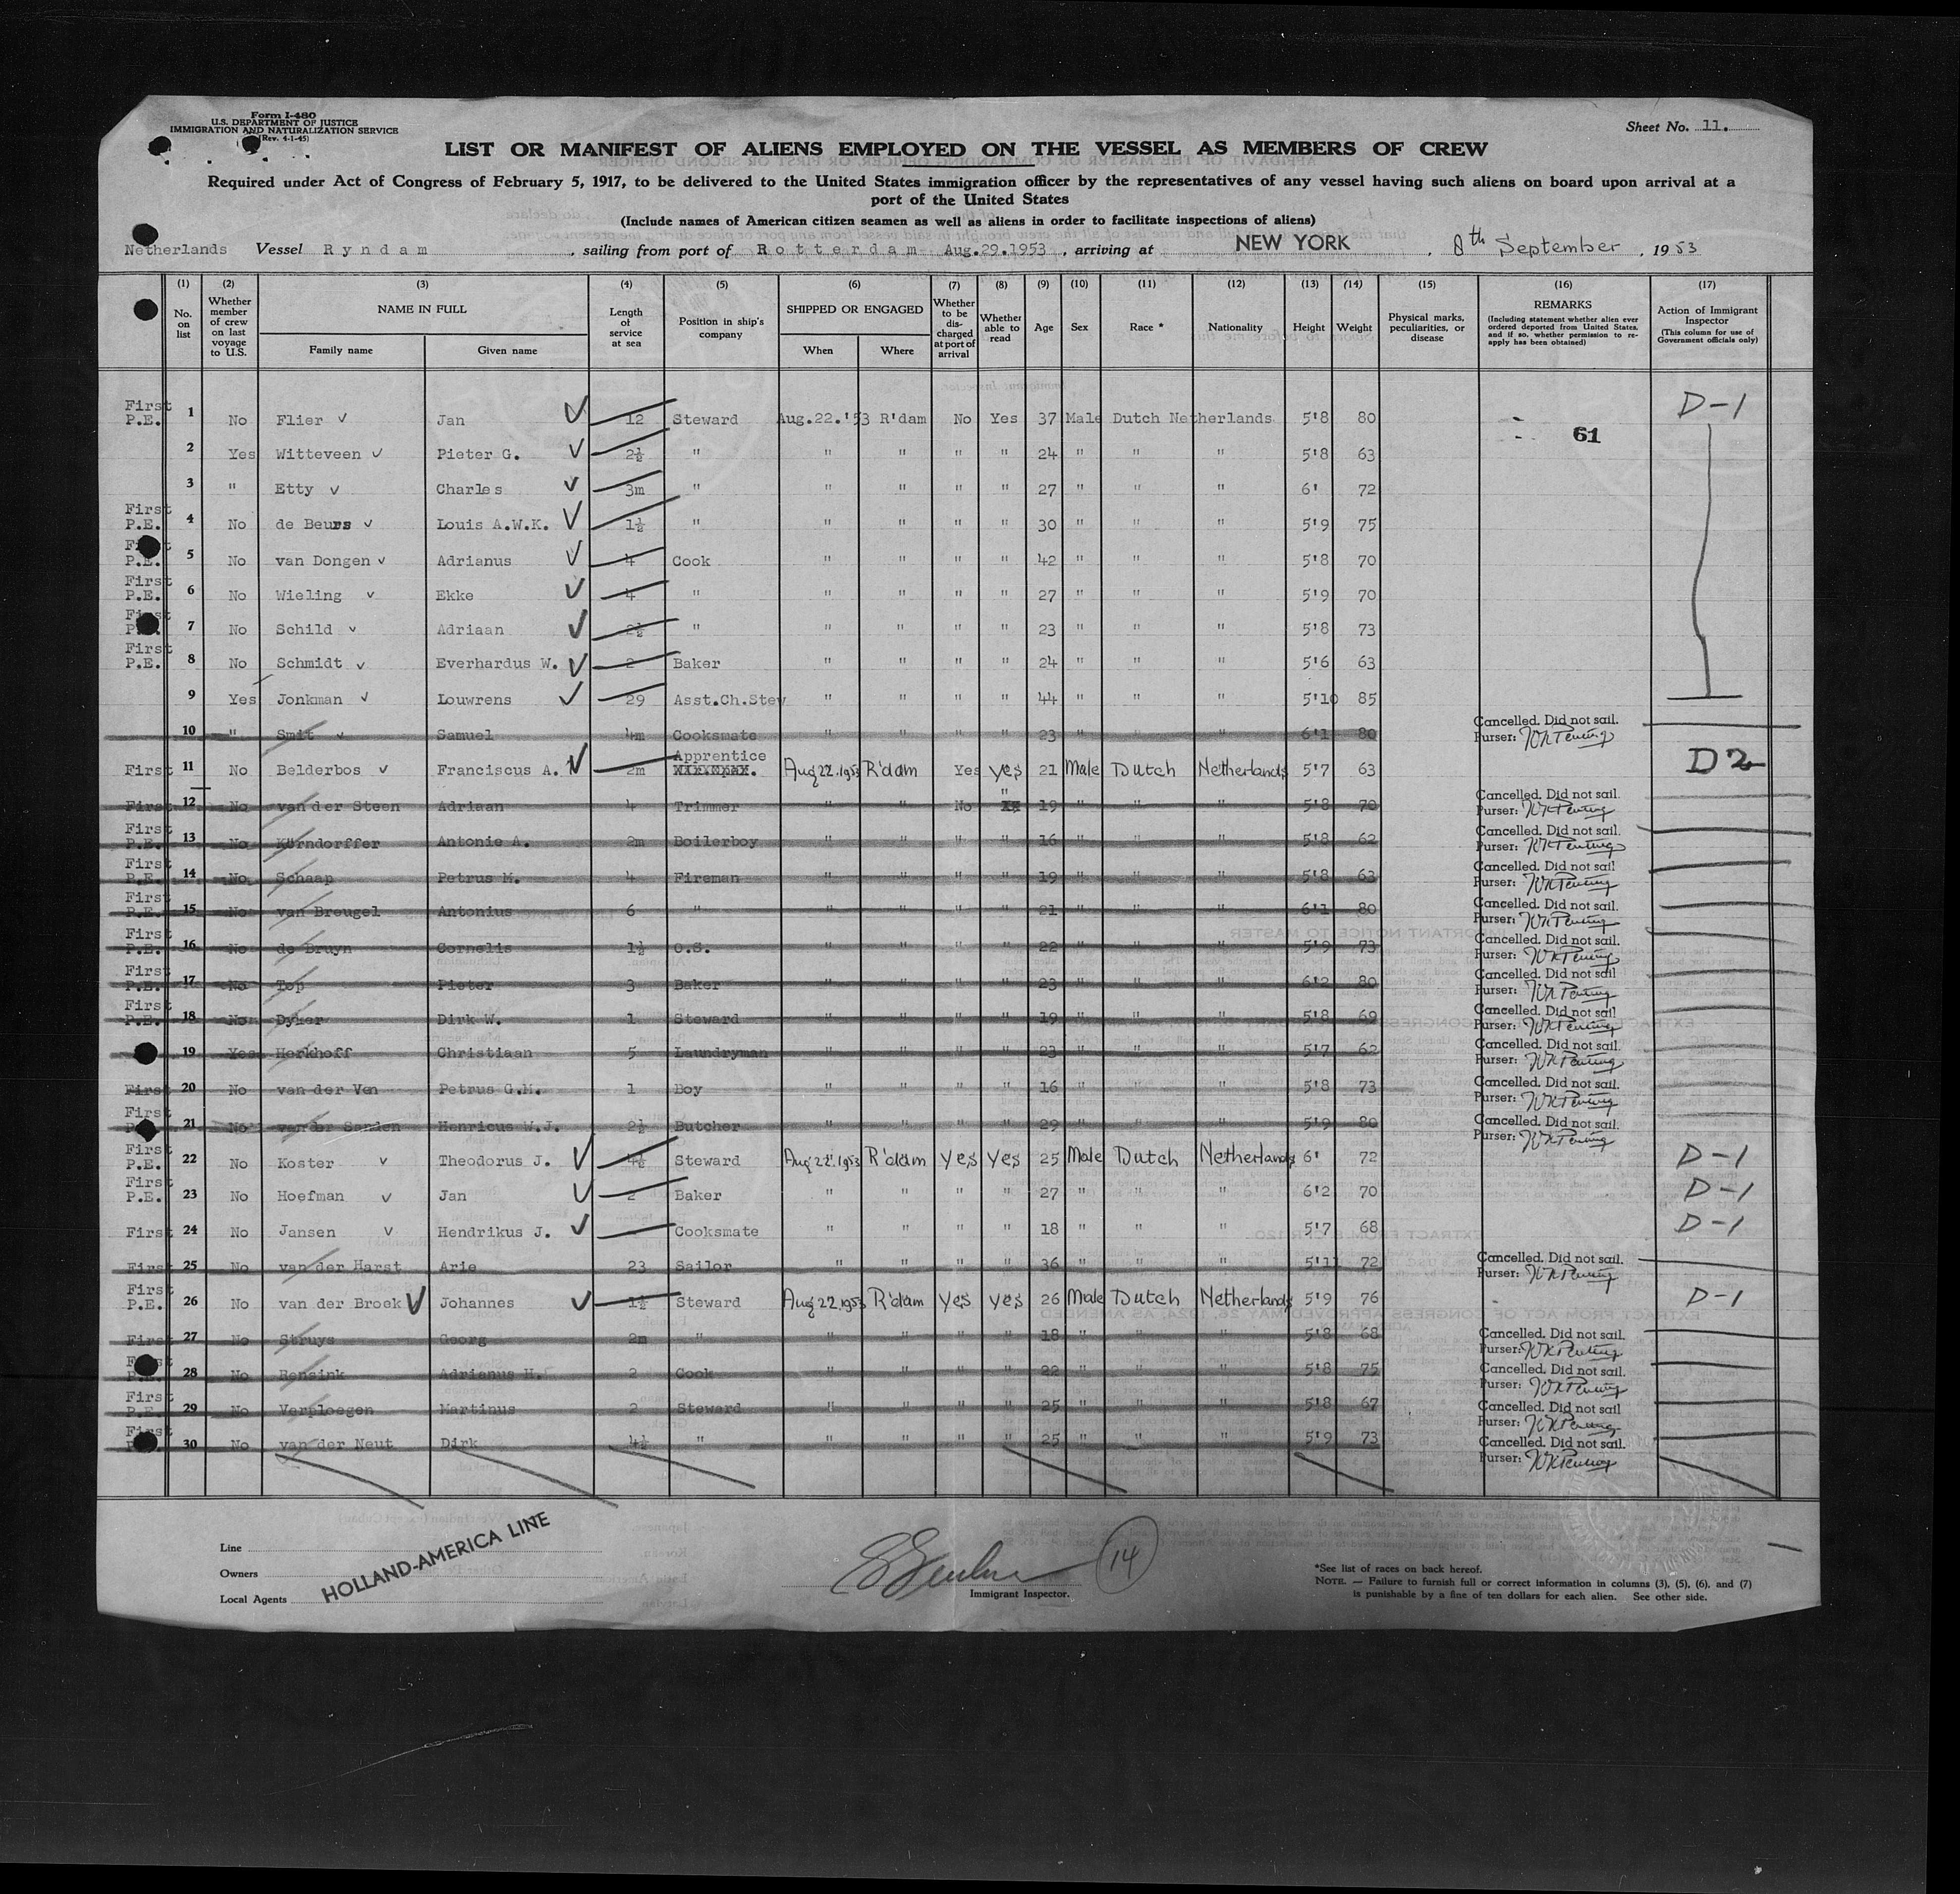 Form I-480
U.S. DEPARTMENT OF JUSTICE
IMMIGRATION AND NATURALIZATION SERVICE
(Rev. 4-1-45)
Sheet No. 11.
LIST OR MANIFEST OF ALIENS EMPLOYED ON THE VESSEL AS MEMBERS OF CREW
Required under Act of Congress of February 5, 1917, to be delivered to the United States immigration officer by the representatives of any vessel having such aliens on board upon arrival at a
port of the United States
(Include names of American citizen seamen as well as aliens in order to facilitate inspections of aliens)
Netherlands Vessel Ryndam, sailing from port of Rotterdam Aug.29.1953, arriving at NEW YORK, 8th September, 1953
(1) (2) (3) (4) (5) (6) (7) (8) (9) (10) (11) (12) (13) (14) (15) (16) (17)
No. on list
Whether member of crew on last voyage to U.S.
NAME IN FULL
Family name
Given name
Length of service at sea
Position in ship's company
SHIPPED OR ENGAGED
When
Where
Whether to be discharged at port of arrival
Whether able to read
Age
Sex
Race *
Nationality
Height
Weight
Physical marks, peculiarities, or disease
REMARKS
(Including statement whether alien ever ordered deported from United States, and if so, whether permission to re-apply has been obtained)
Action of Immigrant Inspector
(This column for use of Government officials only)
First P.E. 1 No Flier Jan 12 Steward Aug.22.'53 R'dam No Yes 37 Male Dutch Netherlands 5'8 80 D-1
61
2 Yes Witteveen Pieter G. 2½ " " " " " 24 " " " 5'8 63
3 " Etty Charles 3m " " " " " 27 " " " 6' 72
First P.E. 4 No de Beurs Louis A.W.K. 1½ " " " " " 30 " " " 5'9 75
First P.E. 5 No van Dongen Adrianus 4 Cook " " " " 42 " " " 5'8 70
First P.E. 6 No Wieling Ekke 4 " " " " " 27 " " " 5'9 70
First 7 No Schild Adriaan 2½ " " " " " 23 " " " 5'8 73
First P.E. 8 No Schmidt Everhardus W. 2 Baker " " " " 24 " " " 5'6 63
9 Yes Jonkman Louwrens 29 Asst.Ch.Stew " " " " 44 " " " 5'10 85
10 " Smit Samuel 4m Cooksmate " " " " 23 " " " 6'1 80 Cancelled. Did not sail. Purser:
First 11 No Belderbos Franciscus A. 2m Apprentice Aug 22.1953 R'dam Yes yes 21 Male Dutch Netherlands 5'7 63 D2
First 12 No van der Steen Adriaan 4 Trimmer " " No " 19 " " " 5'8 70 Cancelled. Did not sail. Purser:
First P.E. 13 No Körndorffer Antonie A. 2m Boilerboy " " " " 16 " " " 5'8 62 Cancelled. Did not sail. Purser:
First P.E. 14 No Schaap Petrus M. 4 Fireman " " " " 19 " " " 5'8 63 Cancelled. Did not sail Purser:
First P.E. 15 No van Breugel Antonius 6 " " " " " 21 " " " 6'1 80 Cancelled. Did not sail. Purser:
First P.E. 16 No de Bruyn Cornelis 1½ O.S. " " " " 22 " " " 5'9 73 Cancelled. Did not sail. Purser:
First P.E. 17 No Top Pieter 3 Baker " " " " 23 " " " 6'2 80 Cancelled. Did not sail Purser:
First P.E. 18 No Dyker Dirk W. 1 Steward " " " " 19 " " " 5'8 69 Cancelled. Did not sail. Purser:
19 Yes Herkhoff Christiaan 5 Laundryman " " " " 23 " " " 5'7 62 Cancelled. Did not sail. Purser:
First 20 No van der Ven Petrus G.M. 1 Boy " " " " 16 " " " 5'8 73 Cancelled. Did not sail. Purser:
First 21 No van der Sanden Henricus W.J. 2½ Butcher " " " " 29 " " " 5'9 80 Cancelled. Did not sail. Purser:
First P.E. 22 No Koster Theodorus J. 4½ Steward Aug 22.1953 R'dam yes yes 25 Male Dutch Netherlands 6' 72 D-1
First P.E. 23 No Hoefman Jan 2 Baker " " " " 27 " " " 6'2 70 D-1
First 24 No Jansen Hendrikus J. Cooksmate " " " " 18 " " " 5'7 68 D-1
First 25 No van der Harst Arie 23 Sailor " " " " 36 " " " 5'11 72 Cancelled. Did not sail. Purser:
First P.E. 26 No van der Broek Johannes 1½ Steward Aug 22.1953 R'dam yes yes 26 Male Dutch Netherlands 5'9 76 D-1
First 27 No Struys Georg 2m " " " " " 18 " " " 5'8 68 Cancelled. Did not sail. Purser:
First 28 No Rensink Adrianus H. 2 Cook " " " " 22 " " " 5'8 75 Cancelled. Did not sail. Purser:
First P.E. 29 No Verploegen Martinus 2 Steward " " " " 25 " " " 5'8 67 Cancelled. Did not sail Purser:
First 30 No van der Neut Dirk 4½ " " " " " 25 " " " 5'9 73 Cancelled. Did not sail. Purser:
Line
Owners
Local Agents
HOLLAND-AMERICA LINE
14
Immigrant Inspector.
*See list of races on back hereof.
NOTE. — Failure to furnish full or correct information in columns (3), (5), (6), and (7)
is punishable by a fine of ten dollars for each alien. See other side.